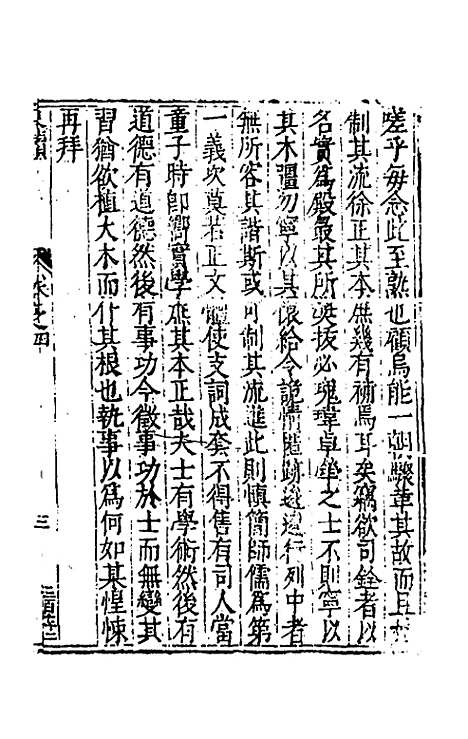 嗟乎每念此至熟也顧烏能一朝驟革其故而且
制其流徐正其本庶幾有補焉耳矣竊欲司銓者以
名實為殿最其所拔必瑰瑋卓犖之士不則寧以
其木彊勿寧以其儇給令詭情匿跡逡巡行列中者
無所容其譖斯或可制其流進此則慎簡師儒為第
一義次莫若正文體使支詞成套不得售有司人當
童子時即嚮實學庶其本正哉夫士有學術然後有
道德有道德然後有事功今徵事功於士而無變其
習猶欲植大木而仆其根也執事以為何如某惶悚
再拜
三